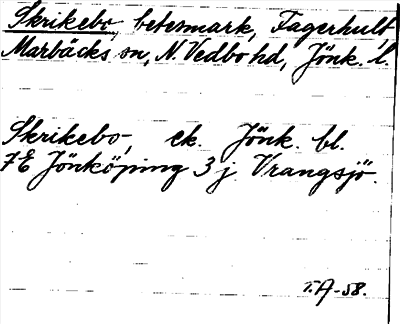 Skrikebo, betesmark, Fagerhult
Marbäcks sn, N. Vedbo hd, Jönk. l.
Skrikebo-, ek. Jönk. bl.
7E Jönköping 3 j Vrangsjö.
T.A-58.